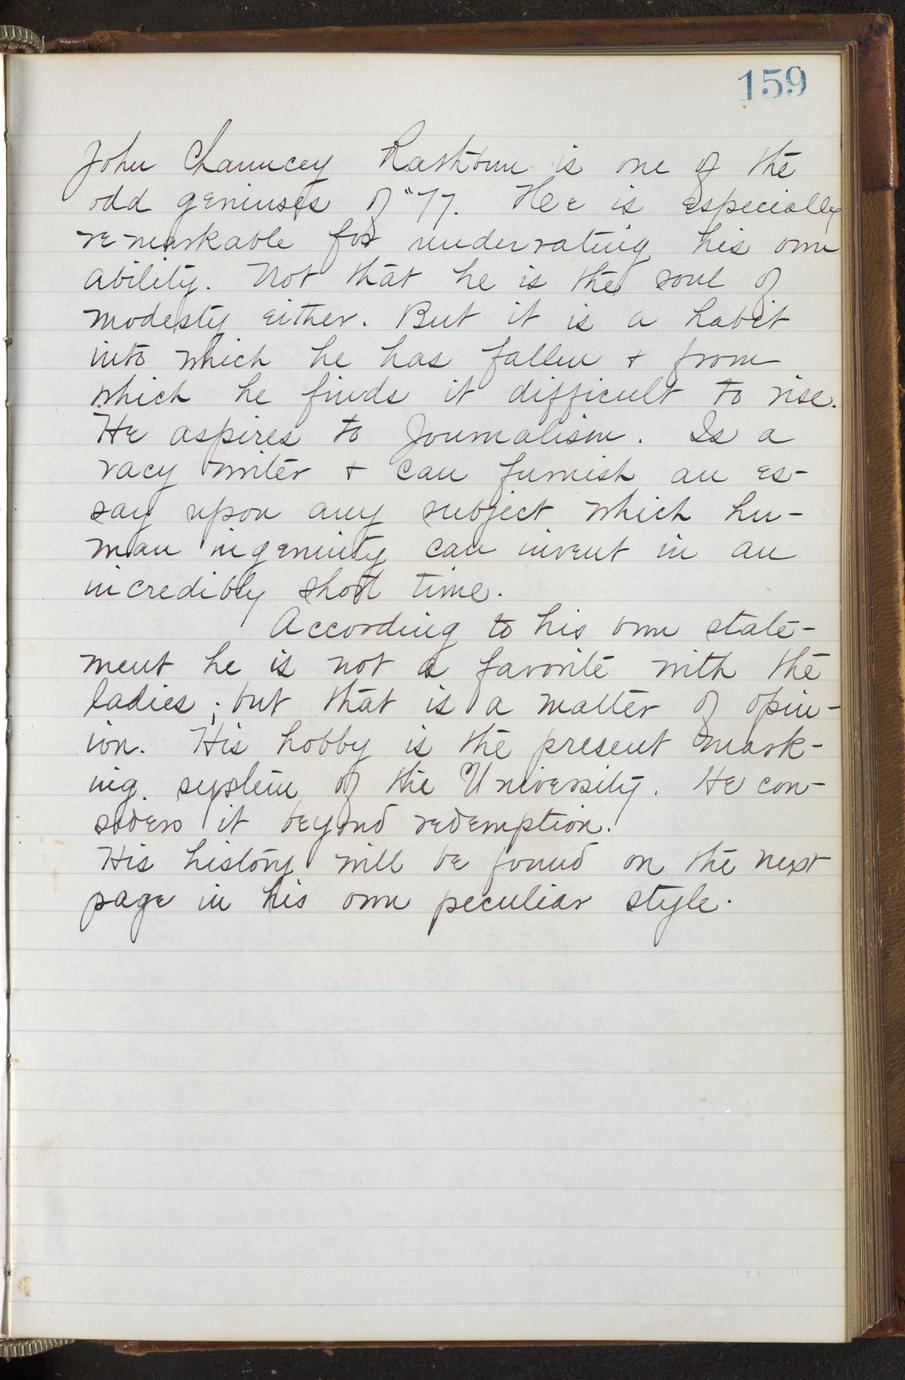 159
John Chauncey Rathbun is one of the
odd geniuses of "77. He is especially
remarkable for underrating his own
ability. Not that he is the soul of
modesty either. But it is a habit
into which he has fallen + from
which he finds it difficult to rise.
He aspires to Journalism. Is a
racy writer + can furnish an es-
say upon any subject which hu-
man ingenuity can invent in an
incredibly short time.
According to his own state-
ment he is not a favorite with the
ladies; but that is a matter of opin-
ion. His hobby is the present mark-
ing system of the University. He con-
siders it beyond redemption.
His history will be found on the next
page in his own peculiar style.